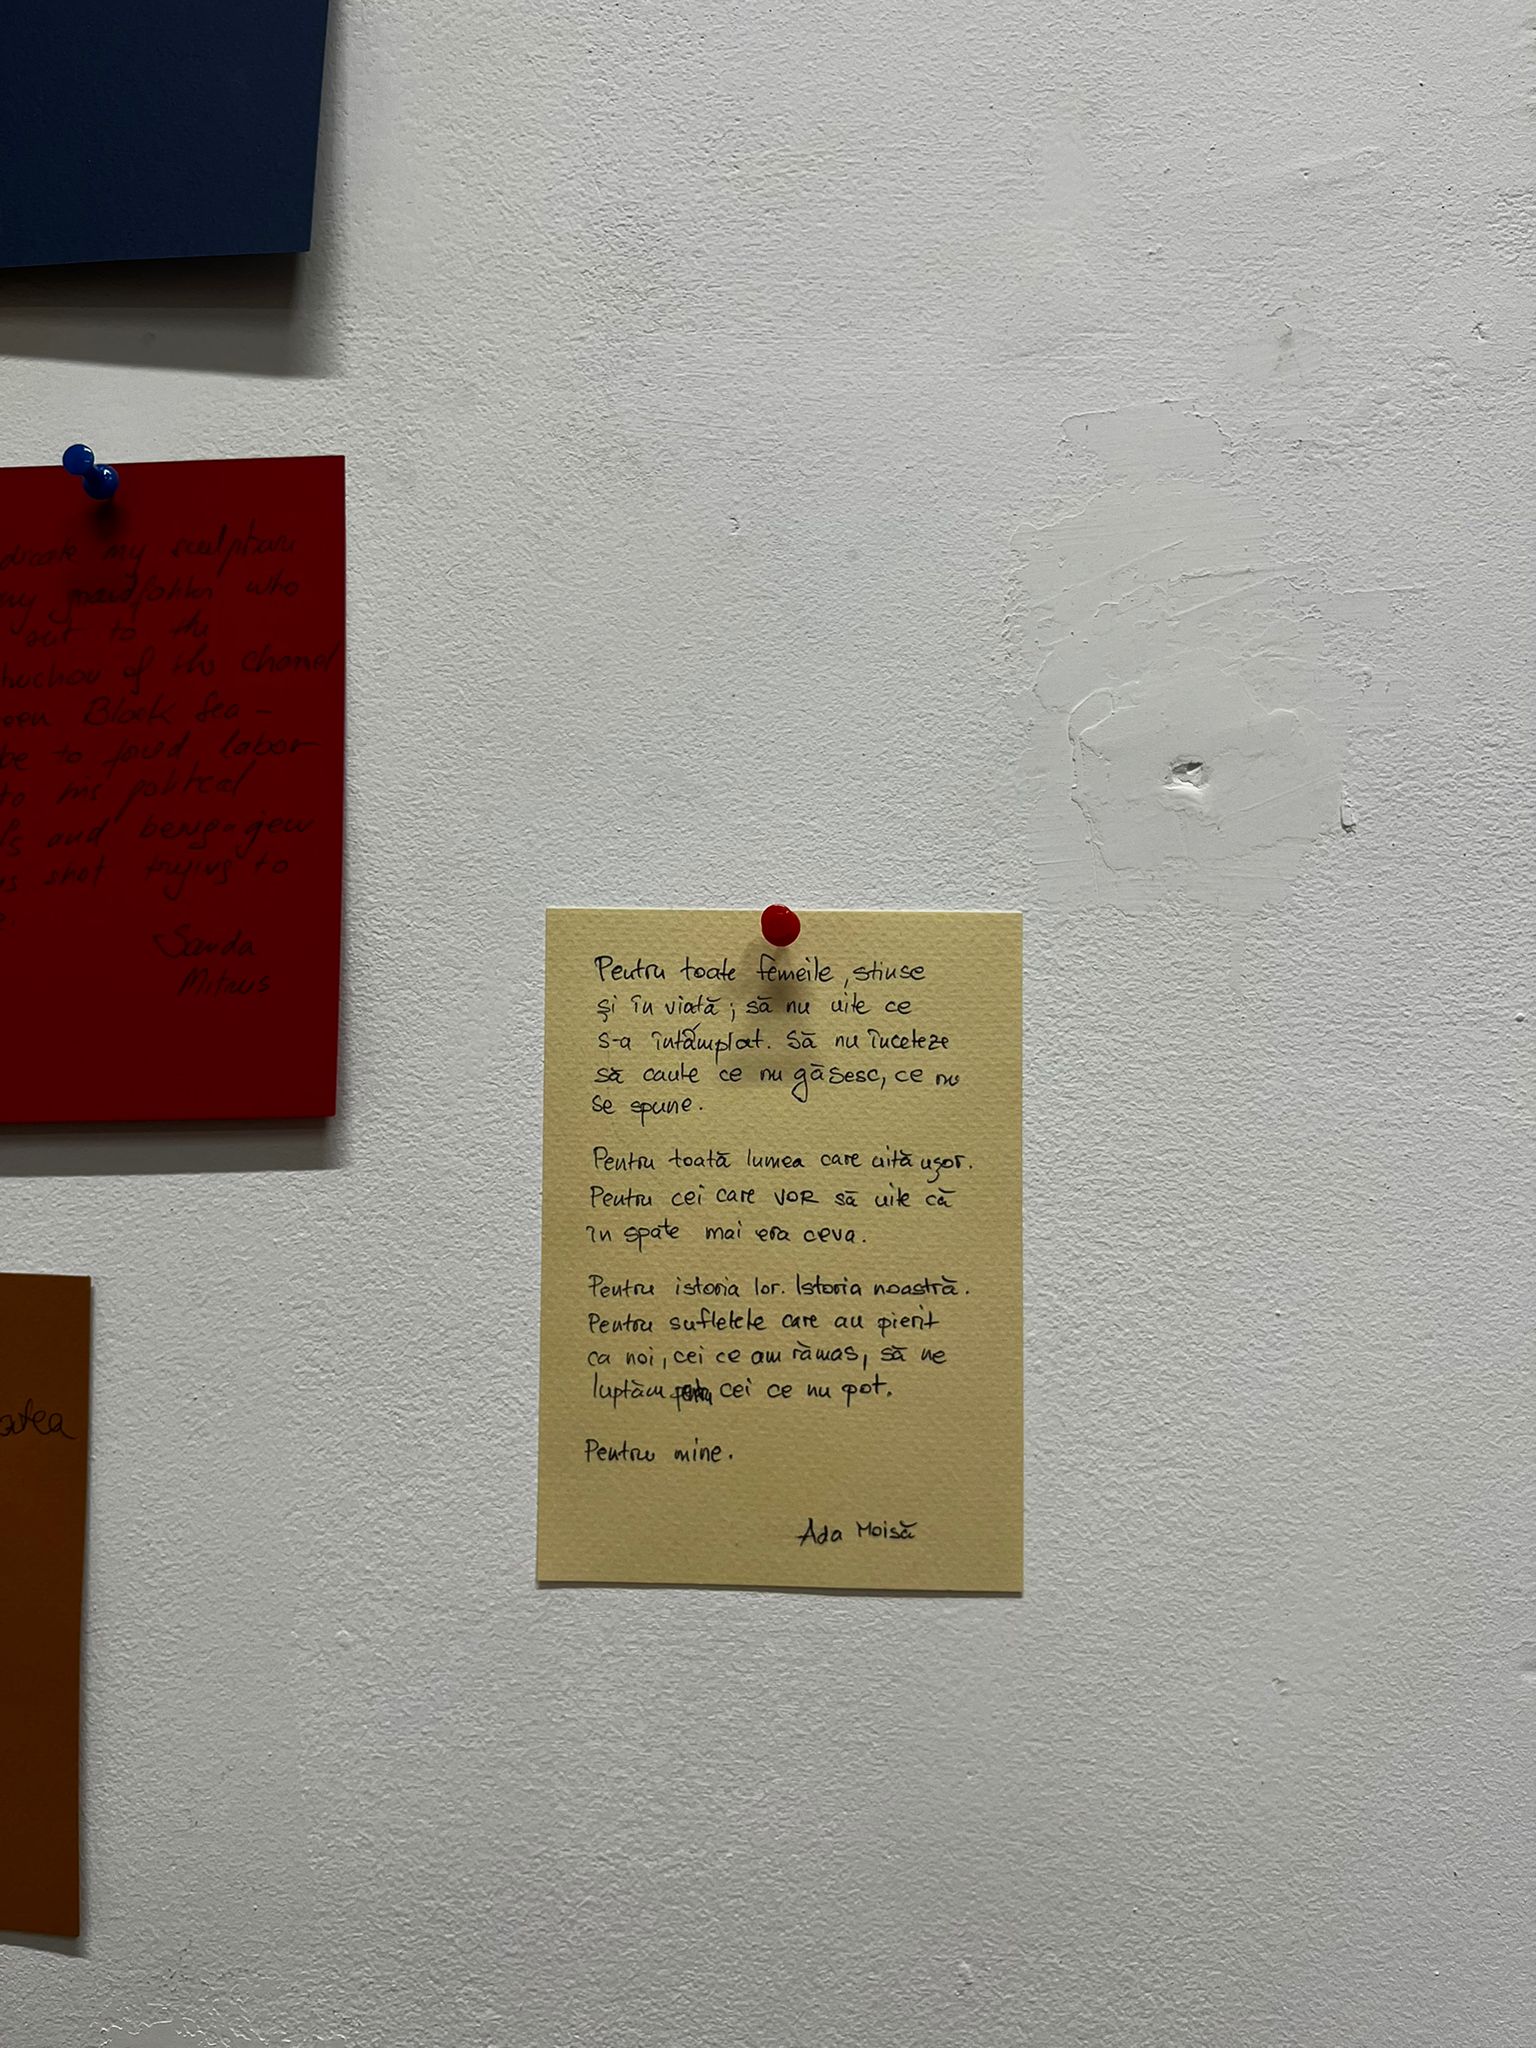 my sculpture
my grandfather who
set to the
of the Chanel
Black Sea -
to forced labor-
to his political
and being-jew
shot trying to
Sanda
Mitrus
Pentru toate femeile, stinse
și în viată; să nu uite ce
s-a întâmplat. Să nu înceteze
să caute ce nu găsesc, ce nu
se spune.
Pentru toată lumea care uită ușor.
Pentru cei care VOR să uite că
în spate mai era ceva.
Pentru istoria lor. Istoria noastră.
Pentru sufletele care au pierit
ca noi, cei ce am rămas, să ne
luptăm pentru cei ce nu pot.
Pentru mine.
Ada Moisă